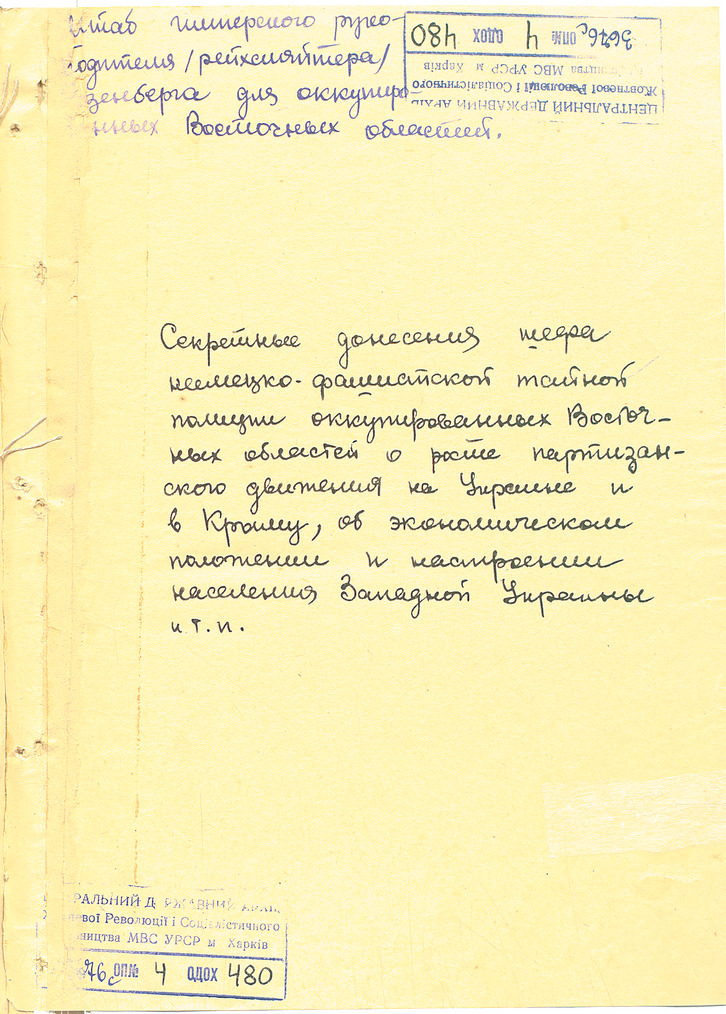 штаб имперского руко-
одителя /рейхсляйтера/
зенберга для оккупиро-
нных Восточных областей.
3676с ОП№ 4 ОДОХ 480
ЦЕНТРАЛЬНИЙ ДЕРЖАВНИЙ АРХІВ
Жовтневої Революції і Соціалістичного
ництва МВС УРСР м Харків
Секретные донесения шефа
немецко-фашистской тайной
полиции оккупированных Восточ-
ных областей о росте партизан-
ского движения на Украине и
в Крыму, об экономическом
положении и настроении
населения Западной Украины
и т. п.
РАЛЬНИЙ ДЕРЖАВНИЙ АРХІВ
евої Революції і Соціалістичного
ництва МВС УРСР м Харків
76с ОП№ 4 ОДОХ 480